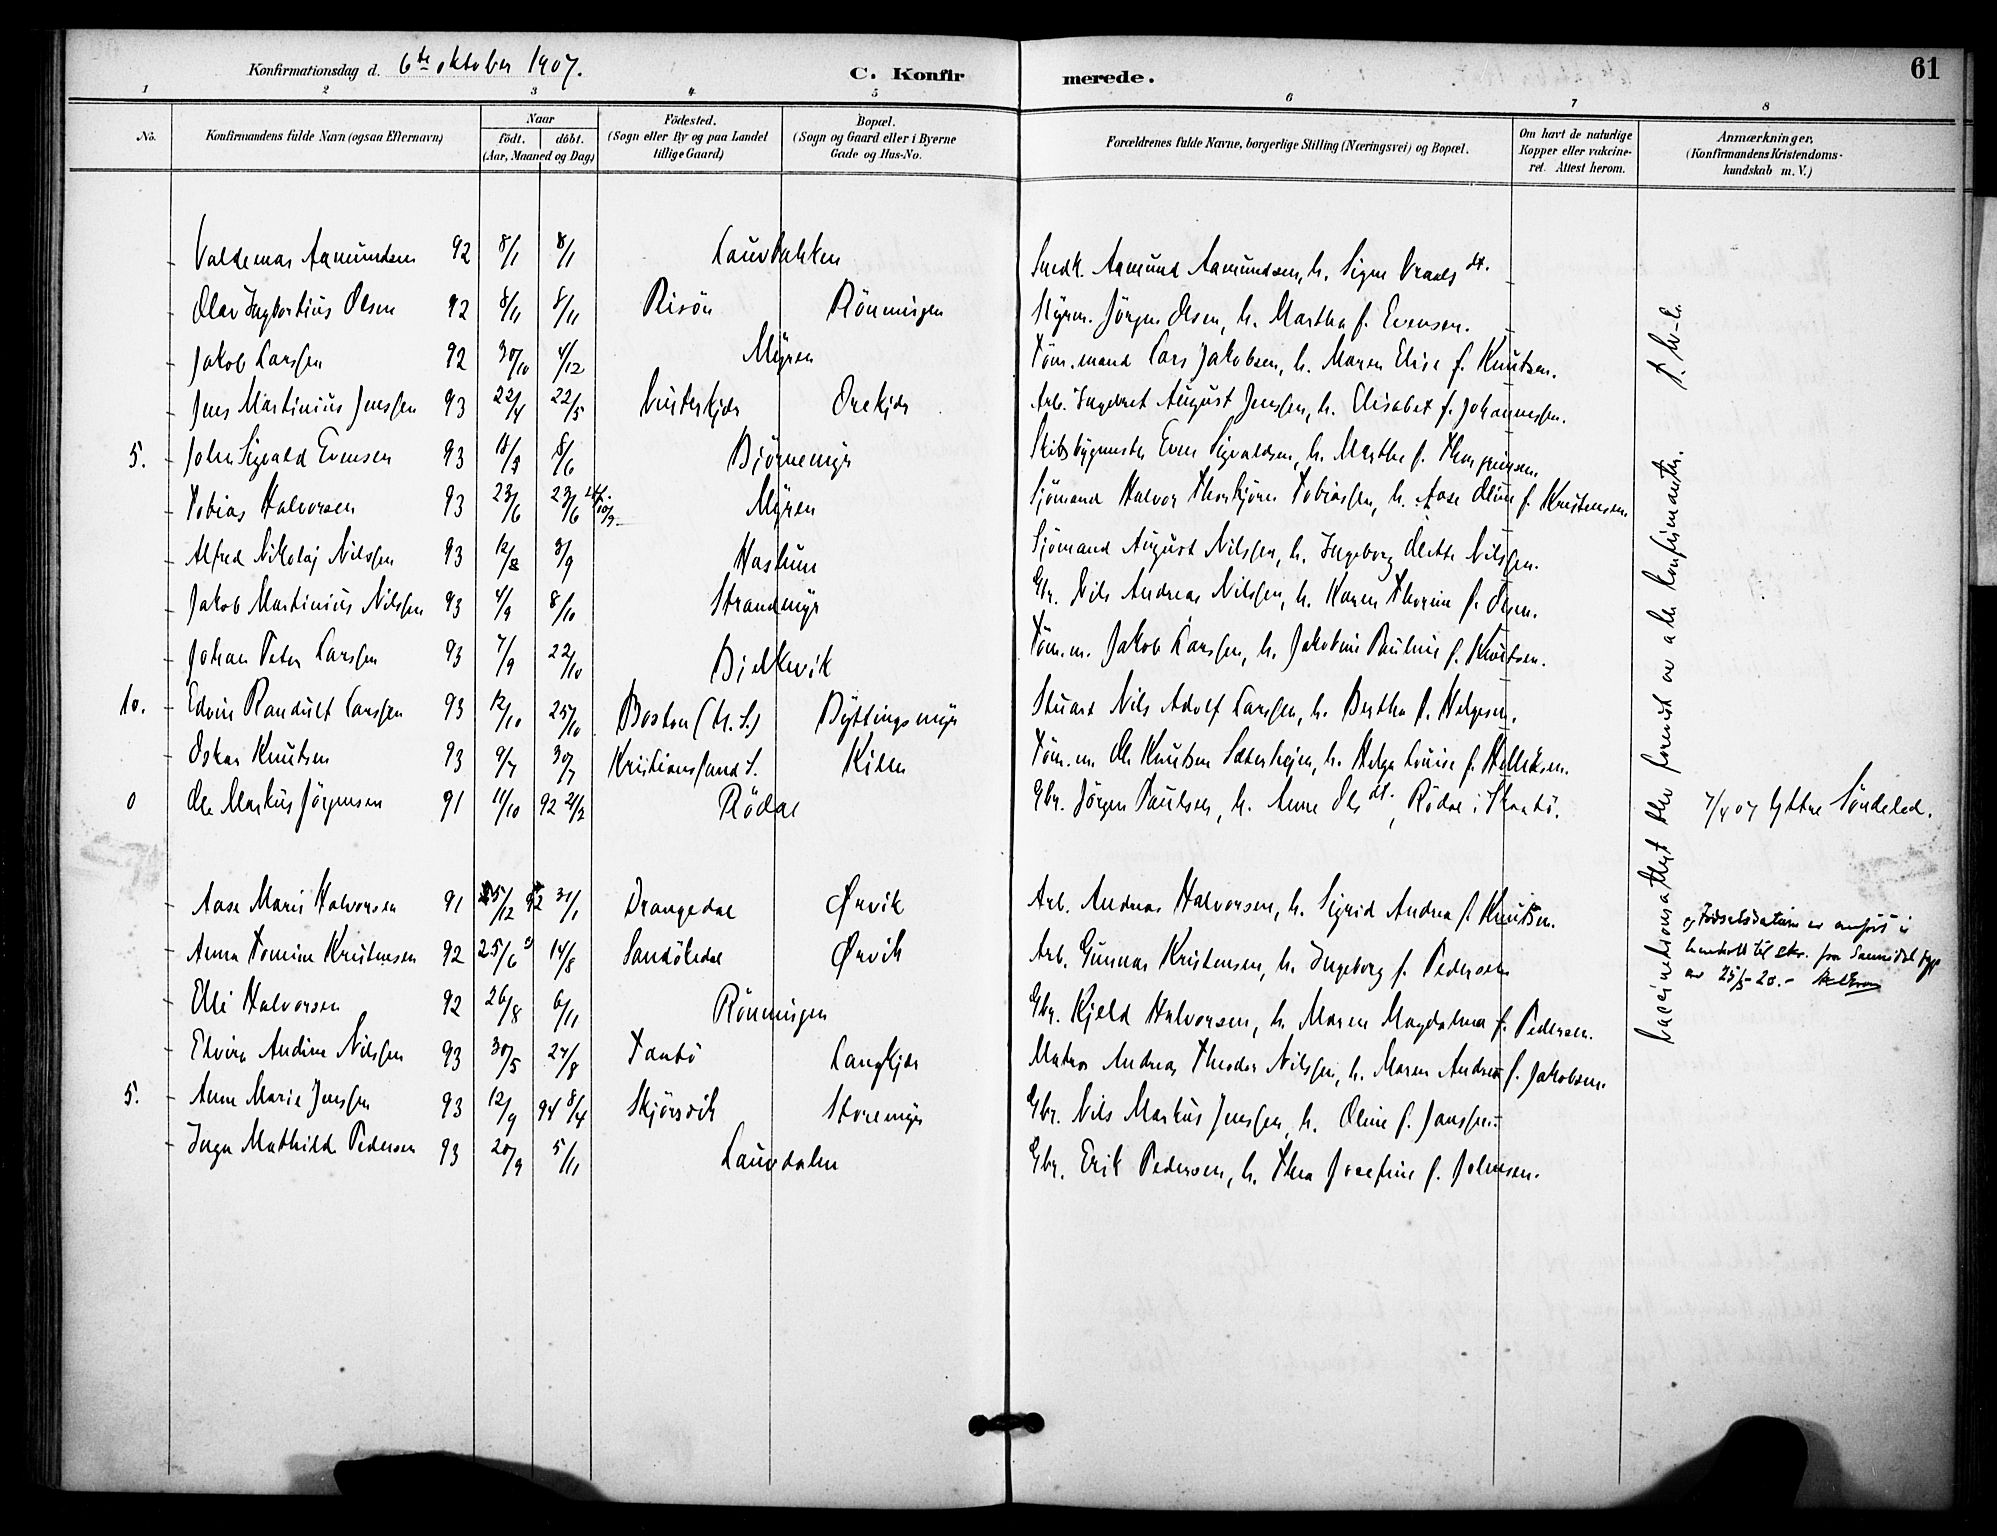 Konfirmationsdag d. 6te oktober 1907. C. Konfirmerede. 61
1 2 3 4 5 6 7 8
No. Konfirmandens fulde Navn (ogsaa Efternavn) Naar født. døbt. (Aar, Maaned og Dag) Fødested. (Sogn eller By og paa Landet tillige Gaard) Bopæl. (Sogn og Gaard eller i Byerne Gade og Hus-No. Forældrenes fulde Navne, borgerlige Stilling (Næringsvei) og Bopæl. Om havt de naturlige Kopper eller vakcineret. Attest herom. Anmærkninger, (Konfirmandens Kristendomskundskab m. V.)
Valdemar Aamundsen 92 8/1 8/1 Laurbakken Aamund Aamundsen, h. Signe
Olav Ingbortius Olsen 92 8/11 8/11 Risön Rönningen Styrm. Jörgen Olsen, h. Martha f. Evensen.
Jakob Larssen 92 30/10 4/12 Myren Töm.mand Lars Jakobsen, h. Maren Elise f. Knutsen.
Jens Martinius Jenssen 93 22/4 22/5 Orekjær Arb. Ingebret August Jenssen, h. Elisabet f. Johannessen.
5. John Sigvald Evensen 93 8/6 Björnemyr Skibsbygmester Even Sigvaldsen, h. Marthe f.
Tobias Halvorsen 93 23/6 23/6 Myren Sjömand Halvor Thorbjörn Tobiassen, h. Aase Oline f. Kristensen
Alfred Nikolaj Nilssen 93 12/8 3/9 Haslum Sjömand August Nilssen, h. Ingeborg Olette Nilssen.
Jakob Martinius Nilssen 93 4/9 8/10 Strandmyr Gbr. Nils Andreas Nilssen, h. Karen Thorine f. Olsen.
Johan Peter Larssen 93 7/9 22/10 Bjelkevik Töm.m. Jakob Larssen, h. Jakobine Pauline f. Knutsen.
10. Edvin Randulf Larssen 93 12/10 25/10 Boston Byttingsmyr Stuart Nils Adolf Larssen, h. Bertha f. Helgesen.
Oskar Knutsen 93 9/7 30/7 Kristianssand S. Kilen Töm.m. Ole Knutsen h. Helga Louise f.
0 Ole Markus Jörgensen 91 11/10 92 21/2 Rödal Gbr. Jörgen Paulsen, h. Anne Ols dt., Rödal i Skaatö. 7/4 07 Söndeled.
Aase Marie Halvorsen 91 25/12 92 31/1 Drangedal Ørvik Arb. Andreas Halvorsen, h. Sigrid Andrea f. Knutsen.
Anna Tomine Kristensen 92 25/6 14/8 Sandökedal Ørvik Arb. Gunnar Kristensen, h. Ingeborg f. Pedersen
Elli Halvorsen 92 26/8 6/11 Rönningen Gbr. Kjeld Halvorsen, h. Maren Magdalena f. Pedersen.
Elvira Andine Nilssen 93 30/5 27/8 Taatö Langkjær Matros Andreas Theodor Nilssen, h. Maren Andrea f. Jakobsen.
5. Anne Marie Jenssen 93 12/9 94 8/4 Skjörsvik Storemyr Gbr. Nils Markus Jenssen, h. Oline f. Janssen
Inga Mathilde Pedersen 93 20/9 5/11 Laurdalen Gbr. Erik Pedersen, h. Thea Josefine f. Johnsen.
Vaccinationsattest blev forevist av alle konfirmanter.
Födselsdatum er anfört i
henhold til skr. fra Sannidal
av 25/5-20.-